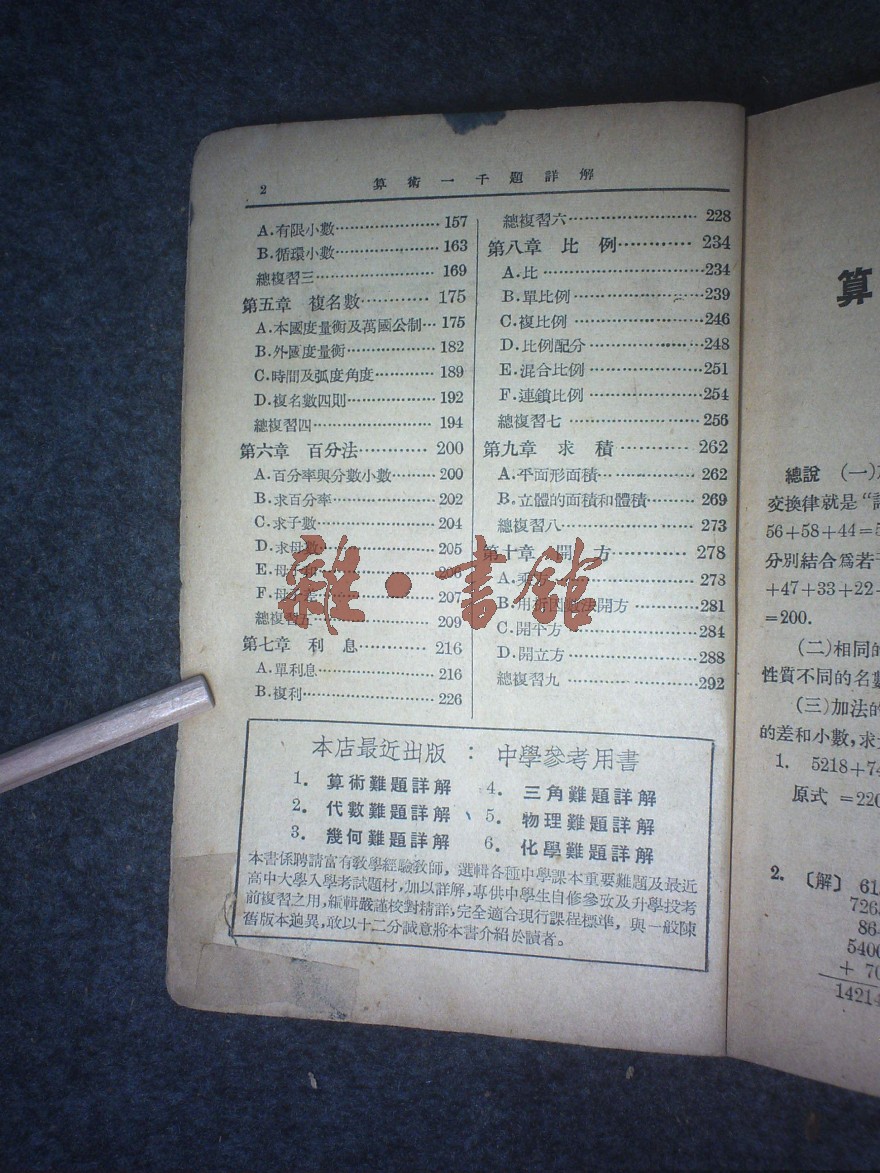 2 算術一千題詳解
A.有限小數 157
B.循環小數 163
總複習三 169
第五章 複名數 175
A.本國度量衡及萬國公制 175
B.外國度量衡 182
C.時間及弧度角度 189
D.複名數四則 192
總複習四 194
第六章 百分法 200
A.百分率與分數小數 200
B.求百分率 202
C.求子數 204
D.求母數 205
E.母子和 206
F.母子差 207
總複習五 209
第七章 利息 216
A.單利息 216
B.複利 226
總複習六 228
第八章 比例 234
A.比 234
B.單比例 239
C.複比例 246
D.比例配分 248
E.混合比例 251
F.連鎖比例 254
總複習七 256
第九章 求積 262
A.平面形面積 262
B.立體的面積和體積 269
總複習八 273
第十章 開方 278
A.乘方 278
B.用析因數法開方 281
C.開平方 284
D.開立方 288
總複習九 292
雜·書館
本店最近出版:中學參考用書
1. 算術難題詳解
2. 代數難題詳解
3. 幾何難題詳解
4. 三角難題詳解
5. 物理難題詳解
6. 化學難題詳解
本書係聘請富有敎學經驗敎師,選輯各種中學課本重要難題及最近
高中大學入學考試題材,加以詳解,專供中學生自修參攷及升學投考
前複習之用,編輯嚴謹校對精詳,完全適合現行課程標準,與一般陳
舊版本逈異,敢以十二分誠意將本書介紹於讀者。
算
總說 (一)
交換律就是“
56+58+44=5
分別結合爲若
+47+33+22
=200.
(二)相同的
性質不同的名數
(三)加法的
的差和小數,求
1. 5218+74
原式 =220
2. 〔解〕 61
7268
86
5400
+ 70
14214